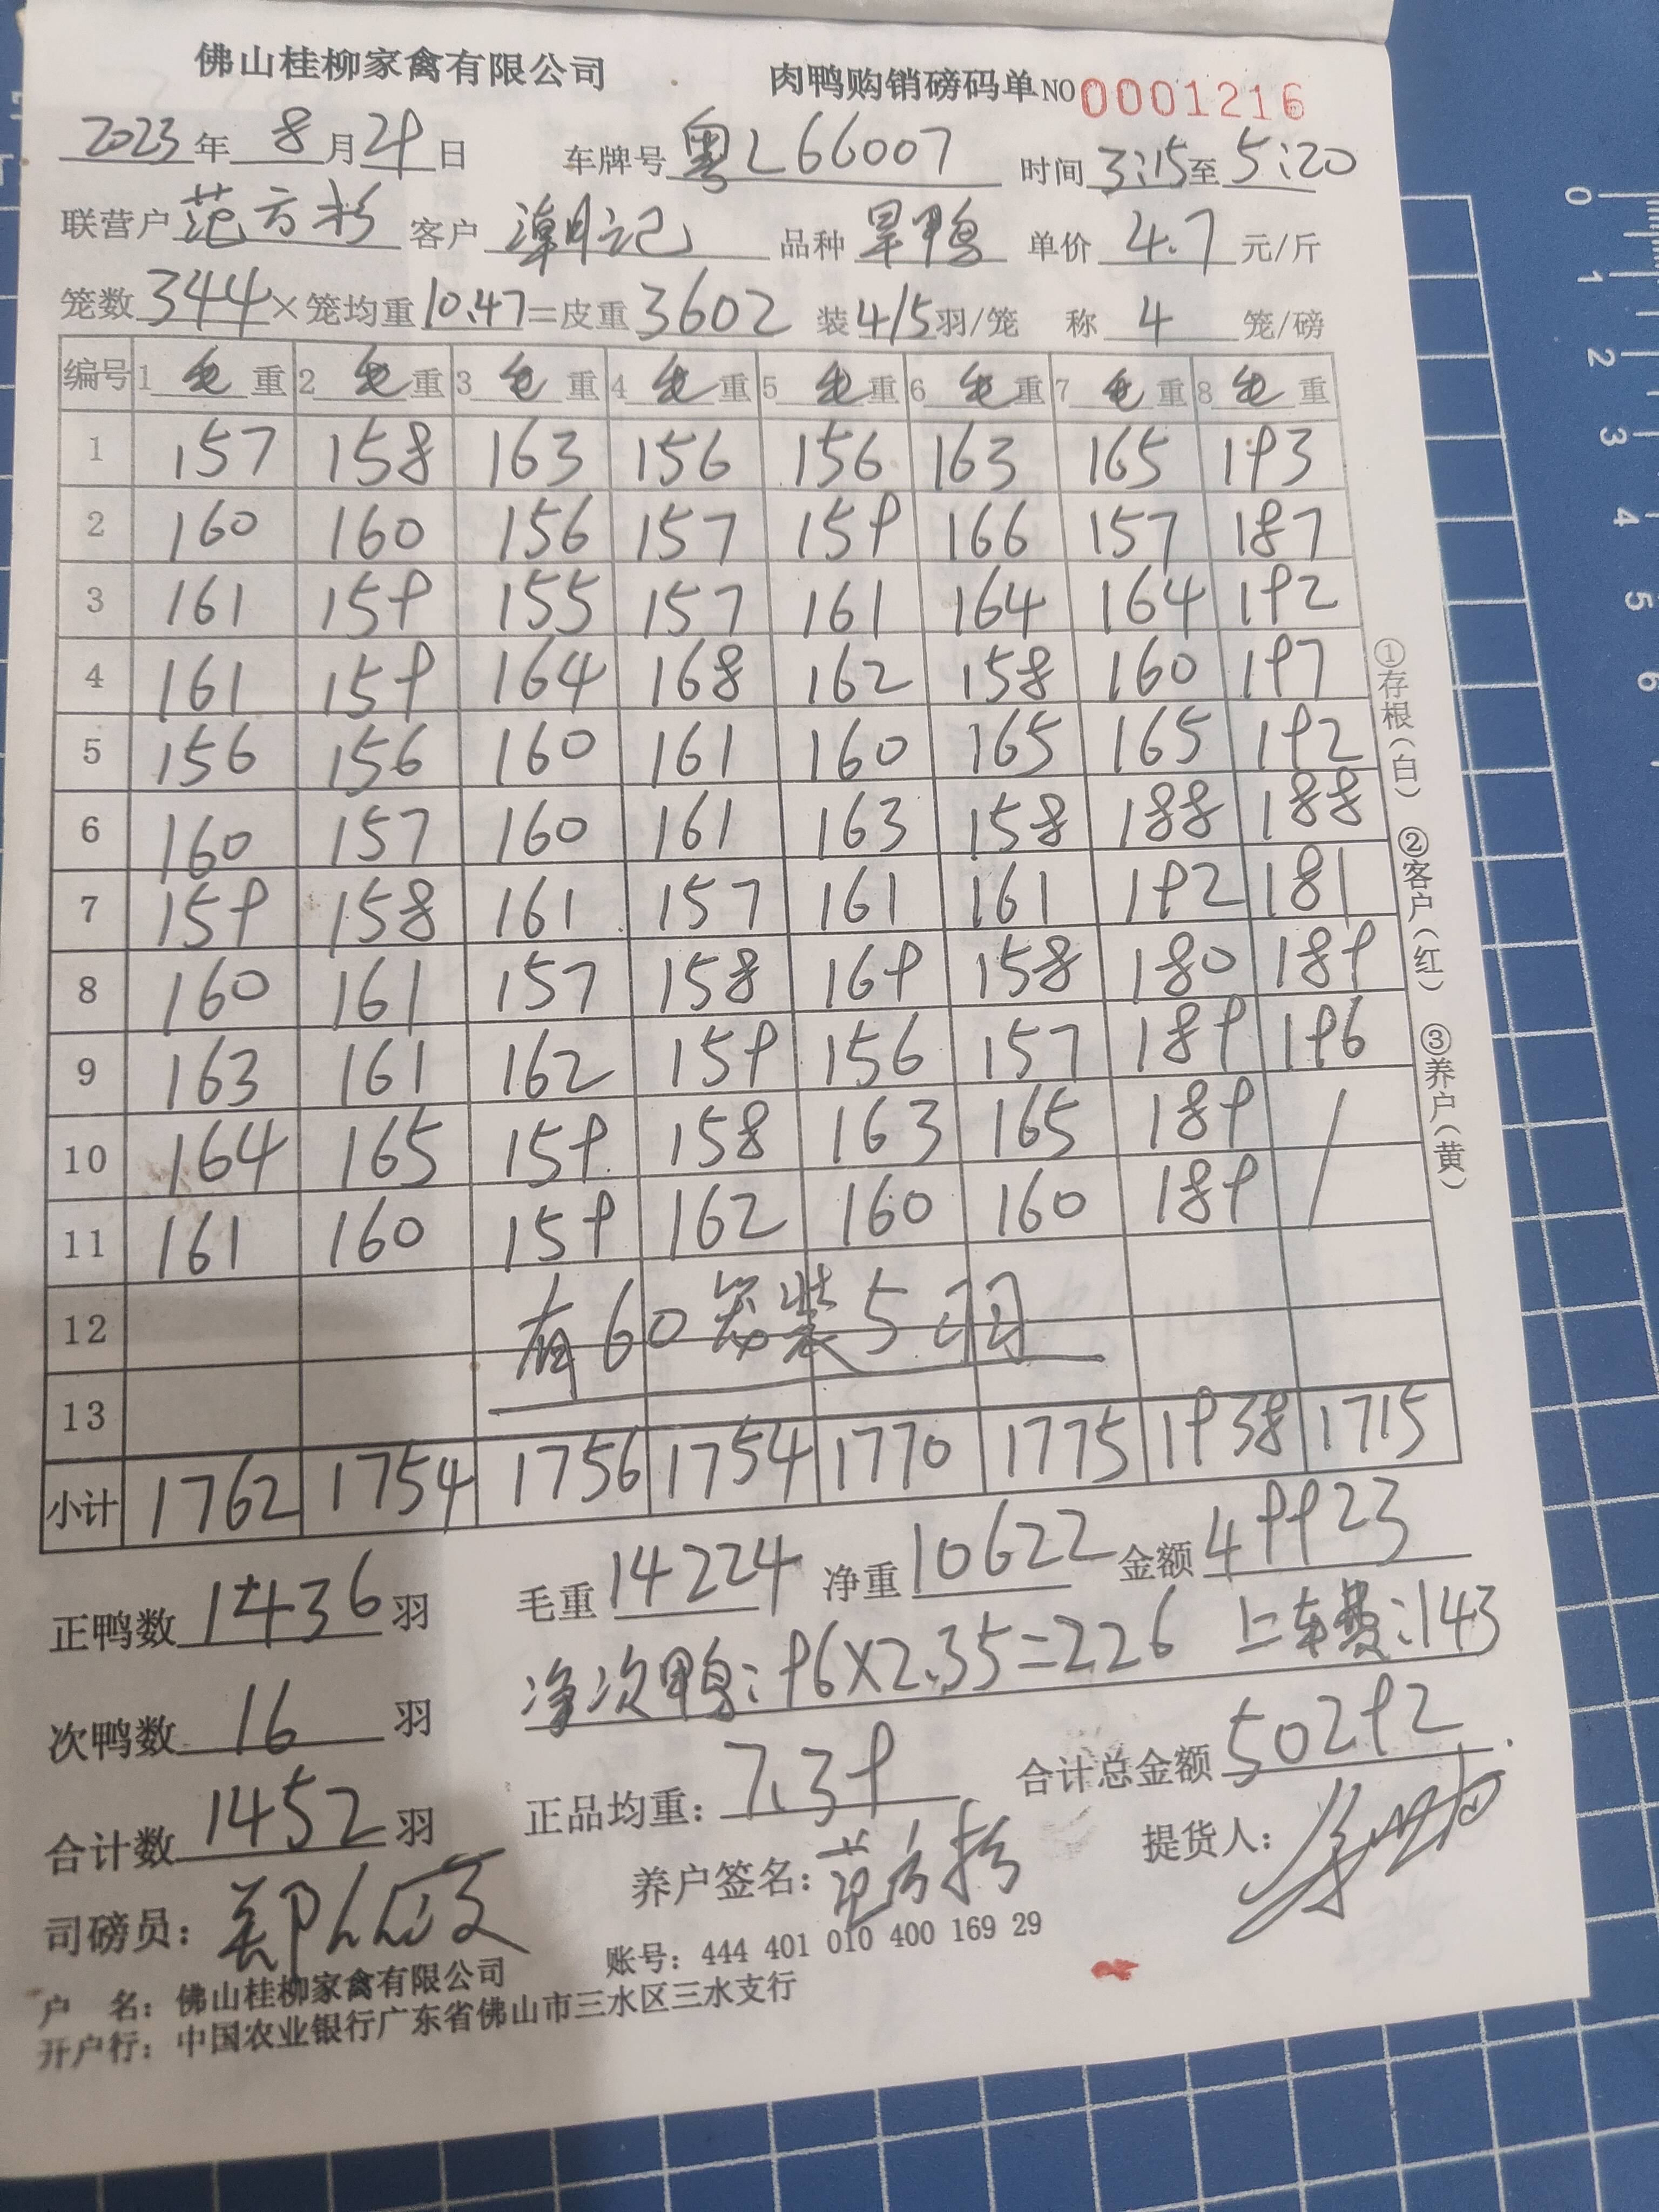 佛山桂柳家禽有限公司 肉鸭购销磅码单 NO 0001216
2023年 8月29日 车牌号 粤L66007 时间 3:15至5:20
联营户 范方杉 客户 潮记 品种 旱鸭 单价 4.7 元/斤
笼数 344 ×笼均重 10.47 =皮重 3602 装 4/5 羽/笼 称 4 笼/磅
编号 1 毛 重 2 毛 重 3 毛 重 4 毛 重 5 毛 重 6 毛 重 7 毛 重 8 毛 重
1 157 158 163 156 156 163 165 193
2 160 160 156 157 159 166 157 187
3 161 159 155 157 161 164 164 192
4 161 159 164 168 162 158 160 197
5 156 156 160 161 160 165 165 192
6 160 157 160 161 163 158 188 188
7 159 158 161 157 161 161 192 181
8 160 161 157 158 169 158 180 189
9 163 161 162 159 156 157 189 196
10 164 165 159 158 163 165 189 /
11 161 160 159 162 160 160 189
12 有60笼装5羽
13
小计 1762 1754 1756 1754 1770 1775 1938 1715
正鸭数 1436 羽 毛重 14224 净重 10622 金额 49923
次鸭数 16 羽 净次鸭:96×2.35=226 上车费:143
合计数 1452 羽 正品均重: 7.39 合计总金额 50292
司磅员: 郑 养户签名: 范方杉 提货人:
户 名: 佛山桂柳家禽有限公司 账号: 444 401 010 400 169 29
开户行: 中国农业银行广东省佛山市三水区三水支行
①存根(白) ②客户(红) ③养户(黄)
0 1 2 3 4 5 6